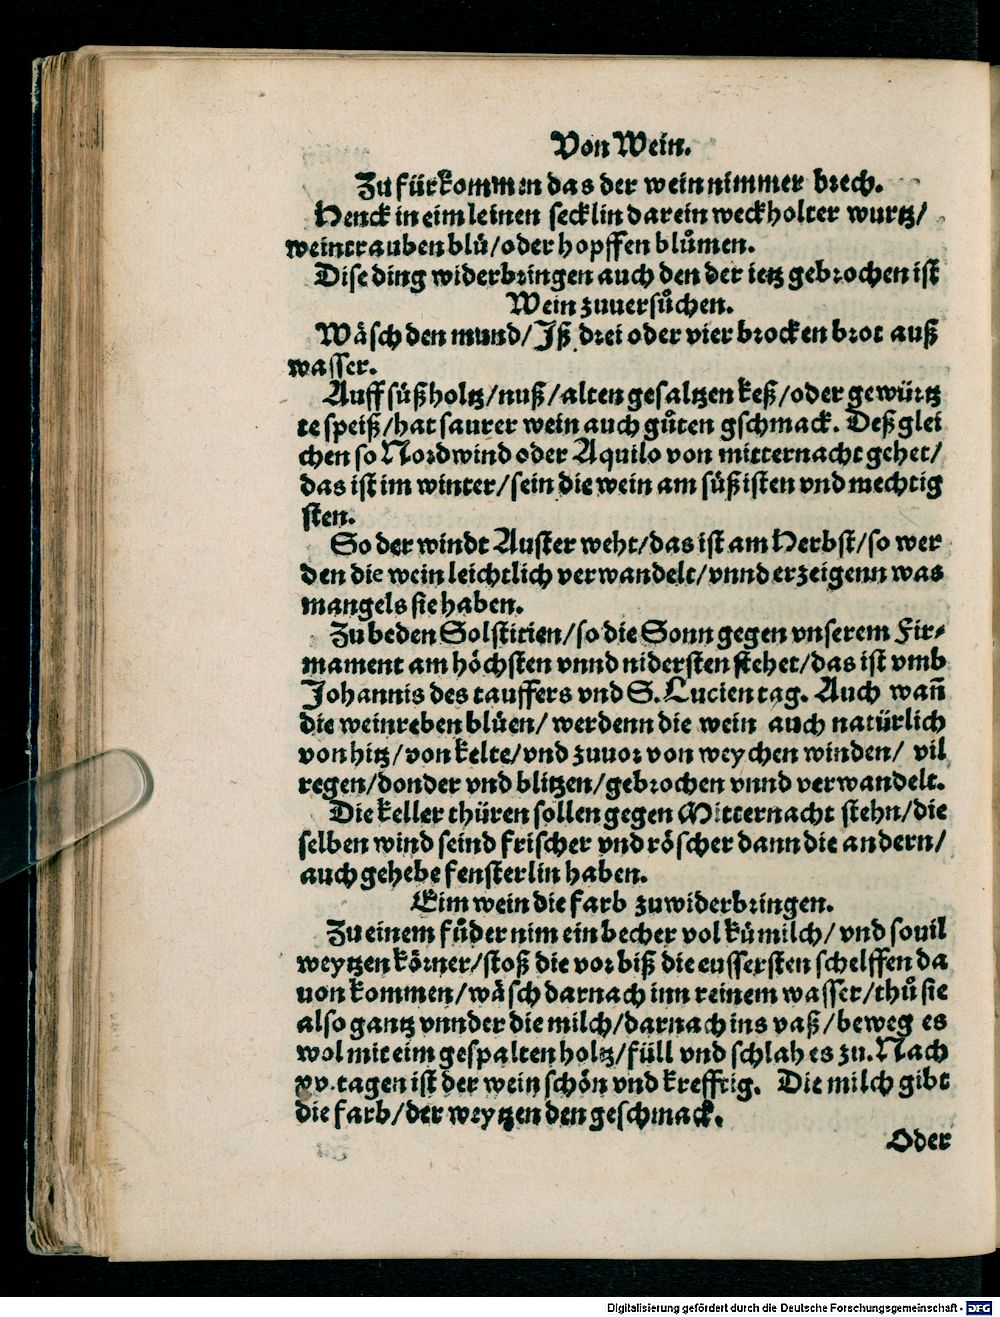 Von Wein.
Zu fürkommen das der wein nimmer brech.
Henck in eim leinen secklin darein weckholter wurtz/
weintrauben blů/oder hopffen blůmen.
Dise ding widerbringen auch den der ietz gebrochen ist
Wein zuuersůchen.
Wäsch den mund/Iß drei oder vier brocken brot auß
wasser.
Auff süßholtz/nuß/alten gesaltzen keß/oder gewürtz
te speiß/hat saurer wein auch gůten gschmack. Deß glei
chen so Nordwind oder Aquilo von mitternacht gehet/
das ist im winter/sein die wein am süßisten vnd mechtig
sten.
So der windt Auster weht/das ist am Herbst/so wer
den die wein leichtlich verwandelt/vnnd erzeigenn was
mangels sie haben.
Zu beden Solstitien/so die Sonn gegen vnserem Fir⸗
mament am höchsten vnnd nidersten stehet/das ist vmb
Johannis des tauffers vnd S. Lucien tag. Auch wañ
die weinreben blůen/ werdenn die wein auch natürlich
von hitz/von kelte/vnd zuuor von weychen winden/ vil
regen/donder vnd blitzen/gebrochen vnnd verwandelt.
Die keller thüren sollen gegen Mitternacht stehn/die
selben wind seind frischer vnd röscher dann die andern/
auch gehebe fensterlin haben.
Eim wein die farb zuwiderbringen.
Zu einem fůder nim ein becher vol kůmilch/ vnd souil
weytzen körner/stoß die vor biß die eussersten schelffen da
uon kommen/wäsch darnach inn reinem wasser/thů sie
also gantz vnnder die milch/darnach ins vaß/beweg es
wol mit eim gespalten holtz/füll vnd schlah es zu. Nach
xv. tagen ist der wein schön vnd krefftig. Die milch gibt
die farb/der weytzen den geschmack.
Oder
Digitalisierung gefördert durch die Deutsche Forschungsgemeinschaft - DFG